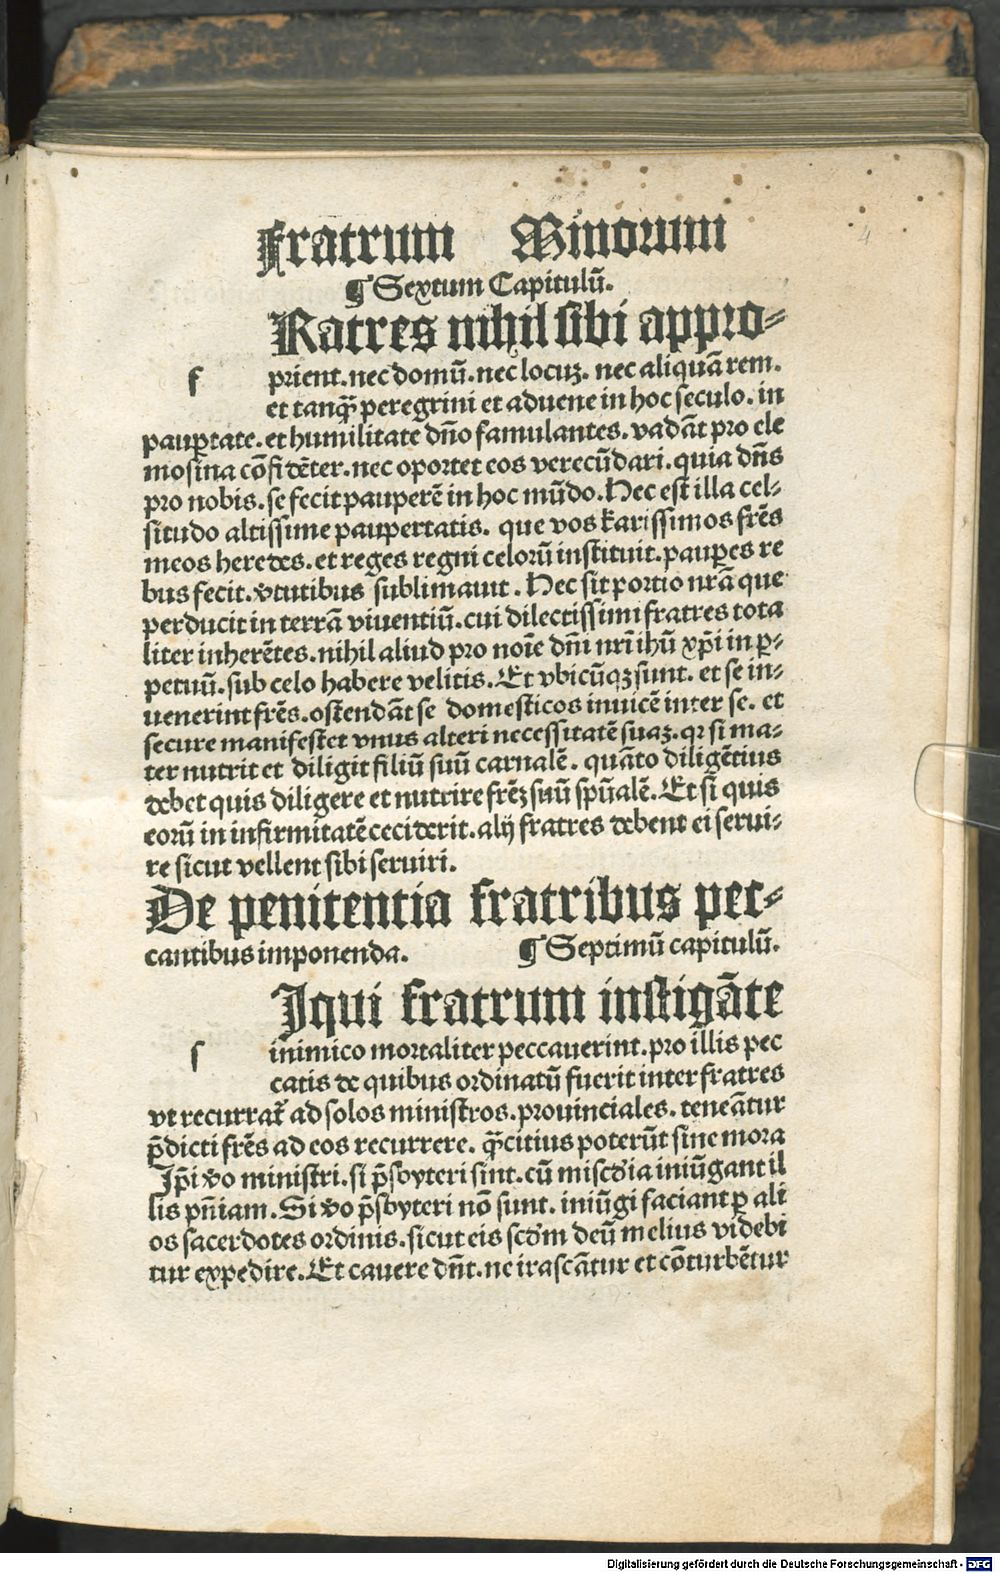 Fratrum Minorum
4
¶ Sextum Capitulū.
Ratres nihil sibi appro⸗
f prient. nec domū. nec locuꝫ. nec aliquā rem.
et tanq̄ꝫ peregrini et aduene in hoc seculo. in
pauꝑtate. et humilitate dño famulantes. vadāt pro ele
mosina cōfidēter. nec oportet eos verecūdari. quia dñs
pro nobis. se fecit pauperē in hoc mūdo. Hec est illa cel⸗
situdo altissime paupertatis. que vos k̄arissimos frēs
meos heredes. et reges regni celorū instituit. pauꝑes re
bus fecit. v̓tutibus sublimauit. Hec sit portio nr̄a que
perducit in terrā viuentiū. cui dilectissimi fratres tota
liter inherētes. nihil aliud pro noīe dñi nr̄i ihū xp̄i in ꝑ⸗
petuū. sub celo habere velitis. Et vbicūqꝫ sunt. et se in⸗
uenerint frēs. ostendāt se domesticos inuicē inter se. et
secure manifestet vnus alteri necessitatē suaꝫ. qꝛ si ma⸗
ter nutrit et diligit filiū suū carnalē. quāto diligētius
debet quis diligere et nutrire frēꝫ suū sp̄ualē. Et si quis
eorū in infirmitatē ceciderit. alij fratres debent ei serui⸗
re sicut vellent sibi seruiri.
De penitentia fratribus pec⸗
cantibus imponenda. ¶ Septimū capitulū.
Iqui fratrum instigāte
s inimico mortaliter peccauerint. pro illis pec
catis de quibus ordinatū fuerit inter fratres
vt recurrat̄ ad solos ministros. prouinciales. teneātur
p̄dicti frēs ad eos recurrere. q̄ꝫcitius poterūt sine mora
Ip̄i v̓o ministri. si p̄sbyteri sint. cū misc̓dia iniūgant il
lis pñiam. Si v̓o p̄sbyteri nō sunt. iniūgi faciant ꝑ ali
os sacerdotes ordinis. sicut eis scd̓m deū melius videbi
tur expedire. Et cauere dñt. ne irascātur et cōturbētur
Digitalisierung gefördert durch die Deutsche Forschungsgemeinschaft - DFG